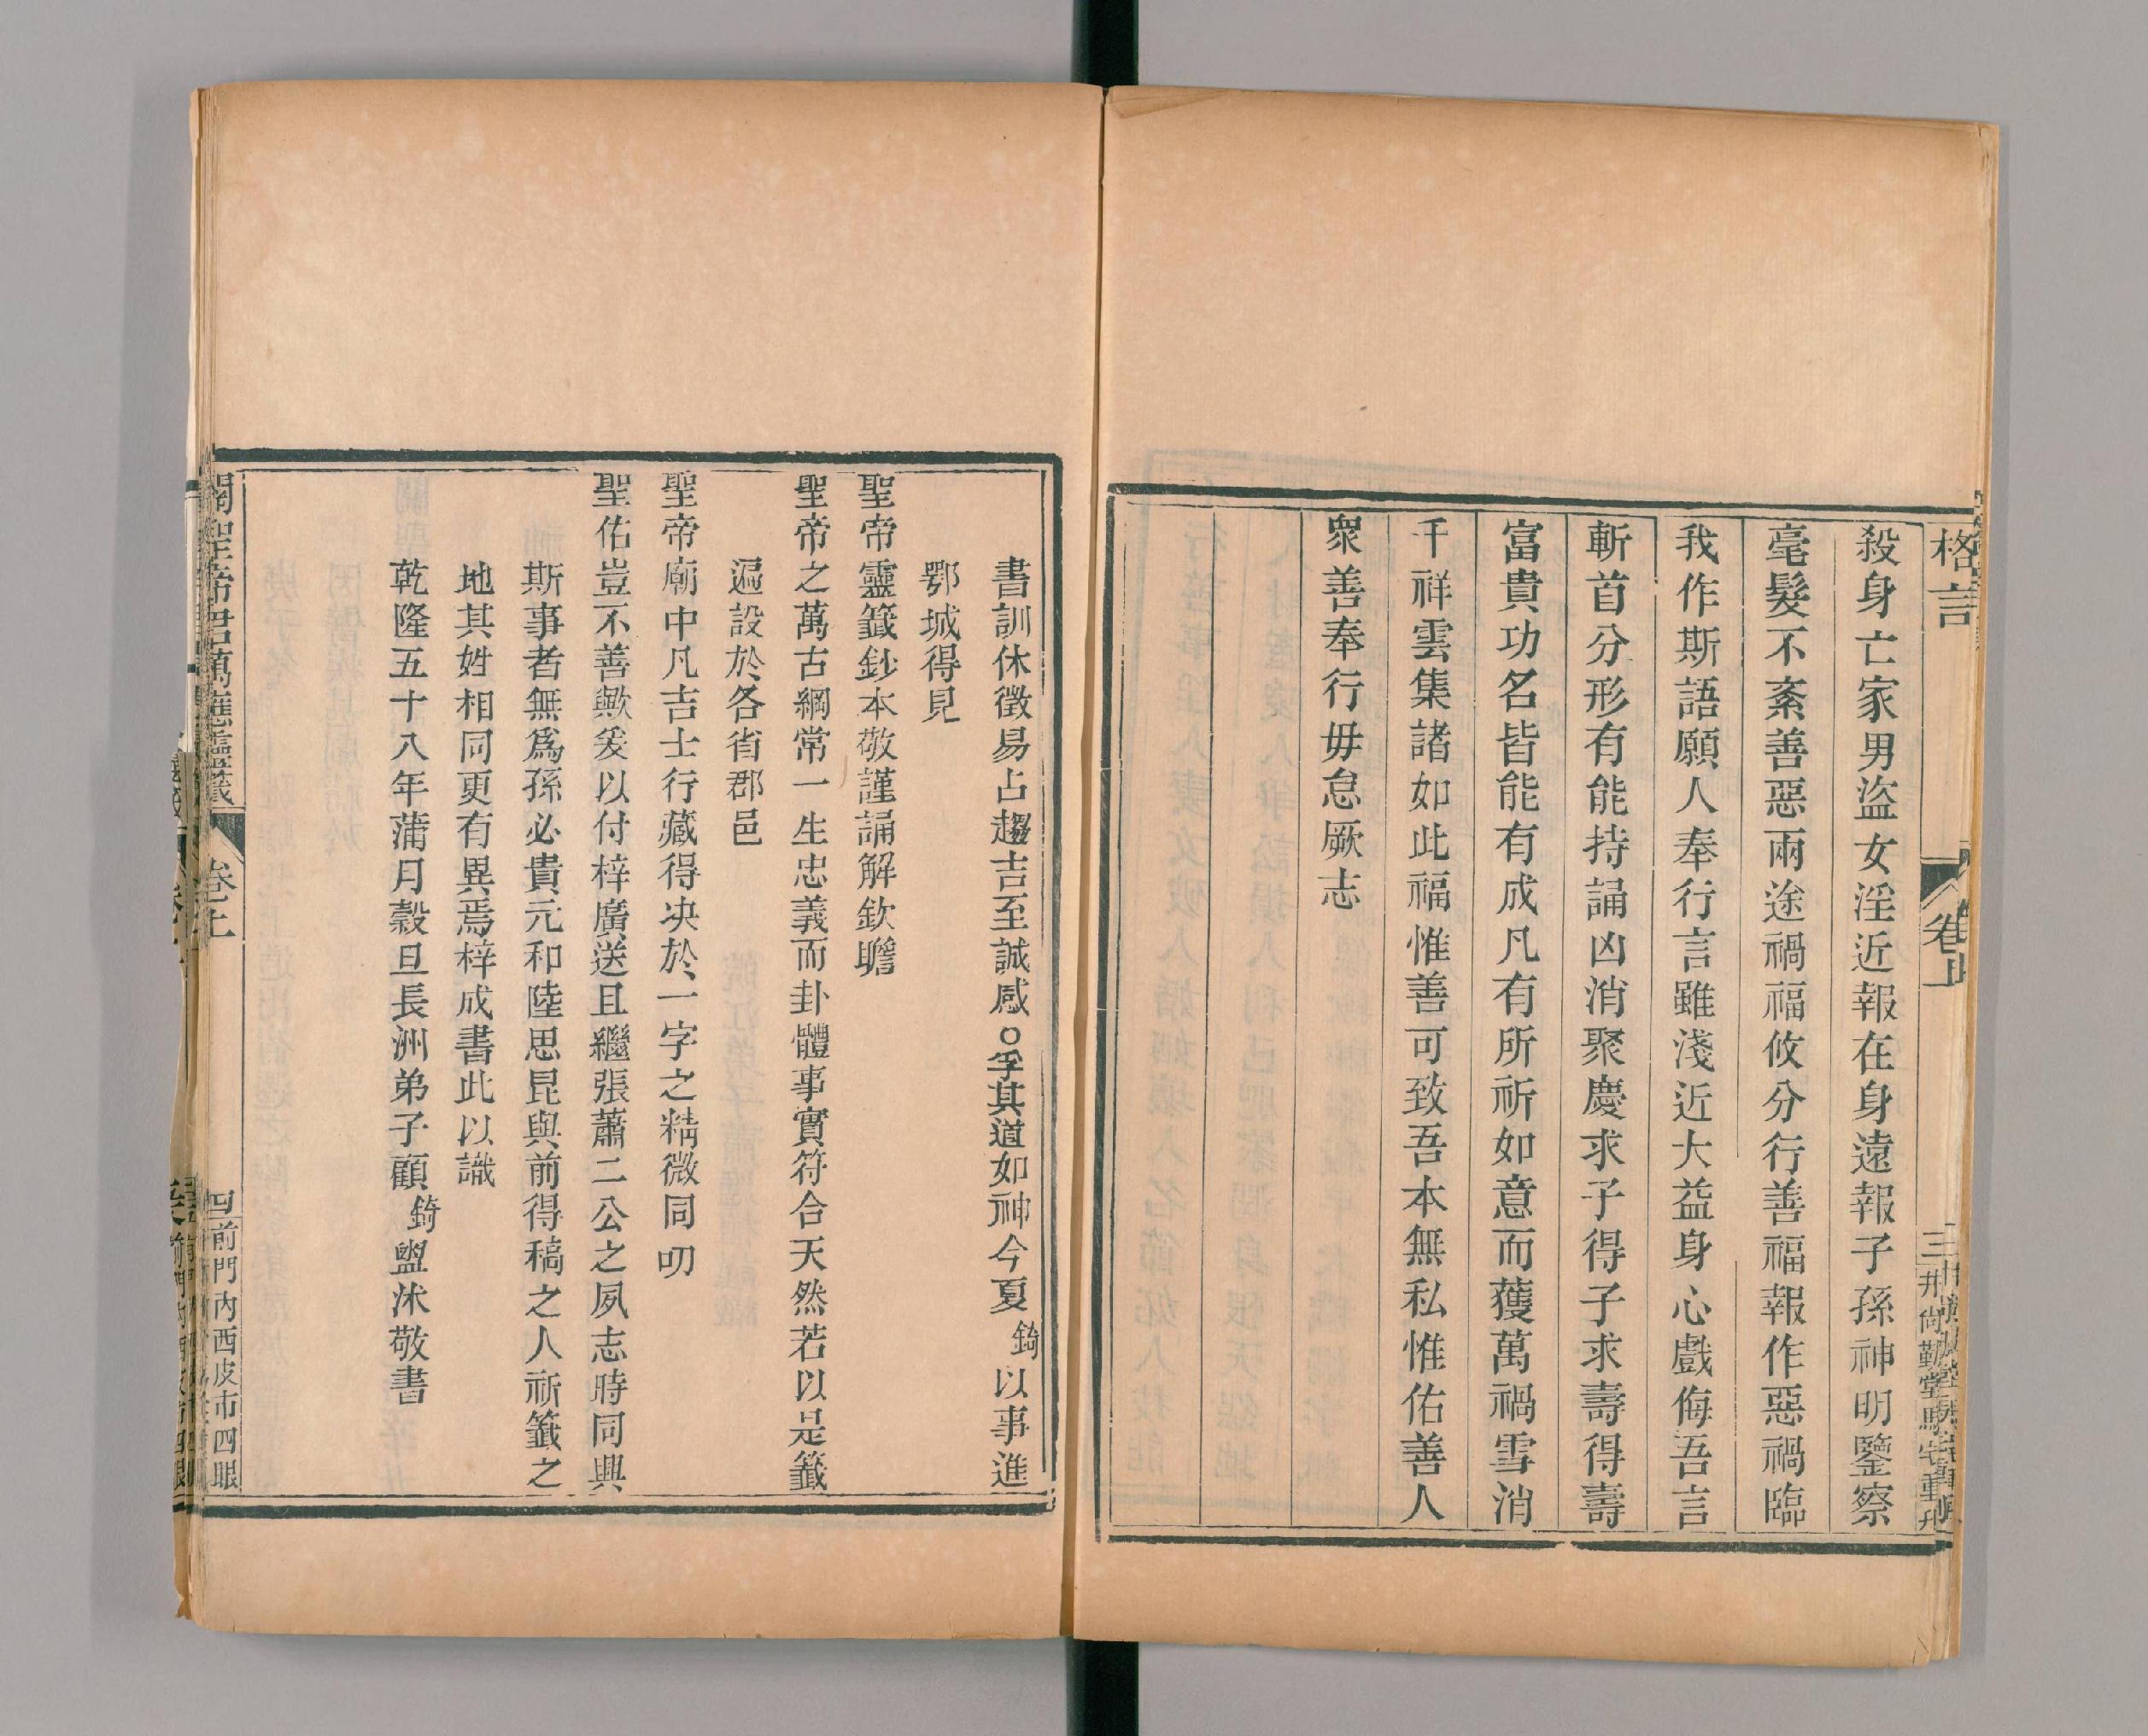 格言
卷上
三
井尚勤堂駱宅重刋
殺身亡家男盜女淫近報在身遠報子孫神明鑒察
毫髮不紊善惡兩途禍福攸分行善福報作惡禍臨
我作斯語願人奉行言雖淺近大益身心戲侮吾言
斬首分形有能持誦凶消聚慶求子得子求壽得壽
富貴功名皆能有成凡有所祈如意而獲萬禍雪消
千祥雲集諸如此福惟善可致吾本無私惟佑善人
衆善奉行毋怠厥志
書訓休徵易占趨吉至誠感○孚其道如神今夏錡以事進
鄂城得見
聖帝靈籤鈔本敬謹誦解欽瞻
聖帝之萬古綱常一生忠義而卦體事實符合天然若以是籤
遍設於各省郡邑
聖帝廟中凡吉士行藏得決於一字之精微同叨
聖佑豈不善歟爰以付梓廣送且繼張蕭二公之夙志時同興
斯事者無爲孫必貴元和陸思昆與前得稿之人祈籤之
地其姓相同更有異焉梓成書此以識
乾隆五十八年蒲月穀旦長洲弟子顧錡盥沐敬書
關聖帝君萬應靈籤
卷上
四
前門內西皮市四眼